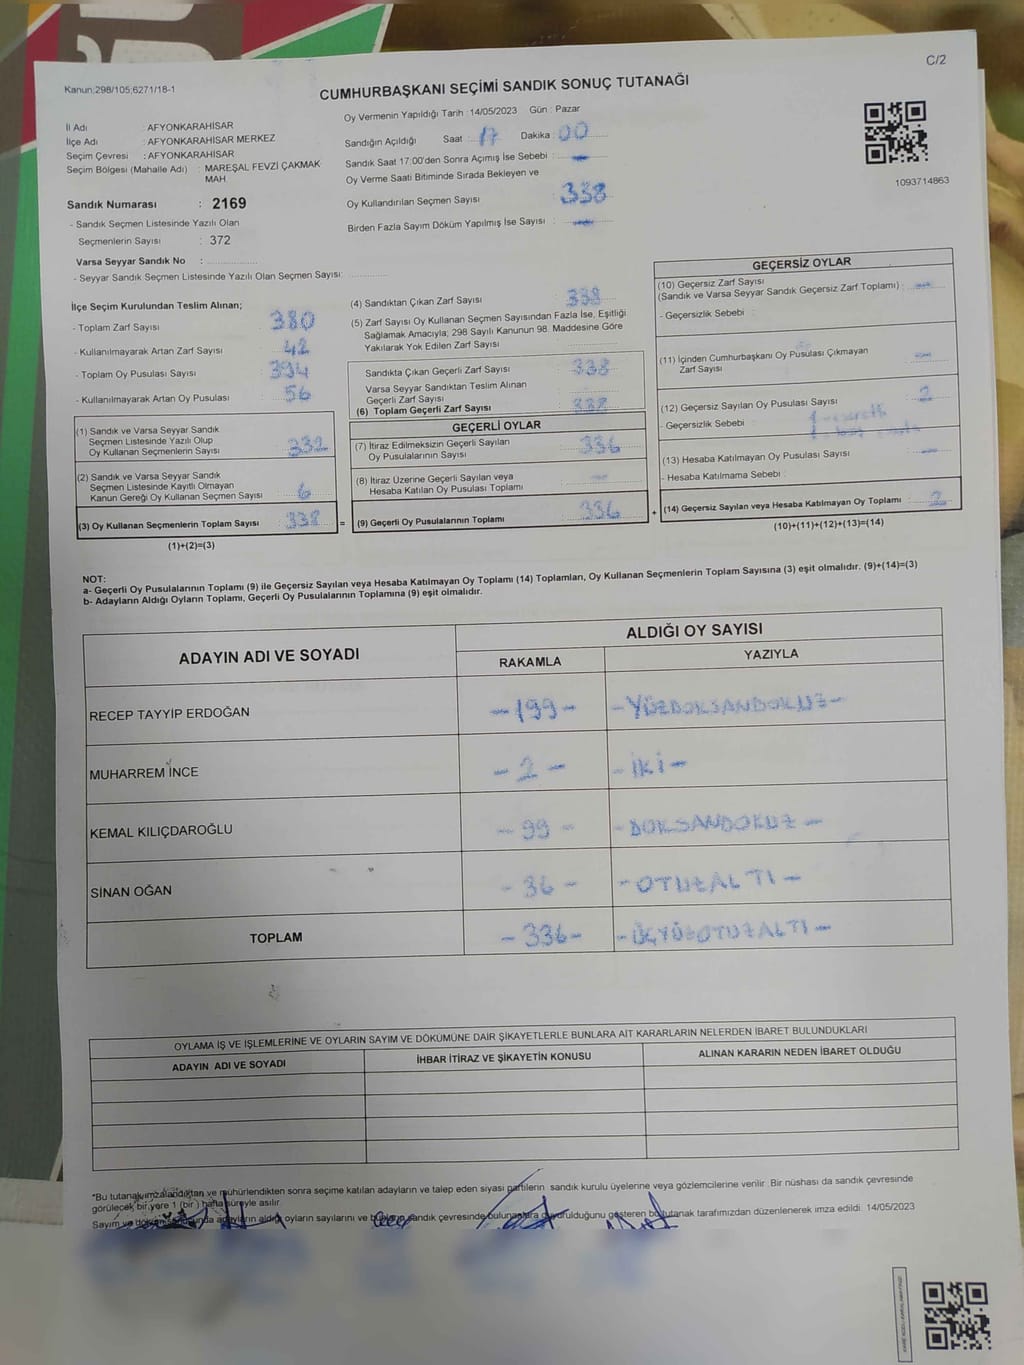 C/2
Kanun:298/105;6271/18-1
CUMHURBAŞKANI SEÇİMİ SANDIK SONUÇ TUTANAĞI
İl Adı : AFYONKARAHİSAR
İlçe Adı : AFYONKARAHİSAR MERKEZ
Seçim Çevresi : AFYONKARAHİSAR
Seçim Bölgesi (Mahalle Adı) : MAREŞAL FEVZİ ÇAKMAK
MAH.
Sandık Numarası : 2169
- Sandık Seçmen Listesinde Yazılı Olan
Seçmenlerin Sayısı : 372
Varsa Seyyar Sandık No :
- Seyyar Sandık Seçmen Listesinde Yazılı Olan Seçmen Sayısı:
Oy Vermenin Yapıldığı Tarih :14/05/2023 Gün : Pazar
Sandığın Açıldığı Saat : 17 Dakika : 00
Sandık Saat 17:00'den Sonra Açımış İse Sebebi : -
Oy Verme Saati Bitiminde Sırada Bekleyen ve
Oy Kullandırılan Seçmen Sayısı : 338
Birden Fazla Sayım Döküm Yapılmış İse Sayısı : -
1093714863
İlçe Seçim Kurulundan Teslim Alınan;
- Toplam Zarf Sayısı : 380
- Kullanılmayarak Artan Zarf Sayısı : 42
- Toplam Oy Pusulası Sayısı : 394
- Kullanılmayarak Artan Oy Pusulası : 56
(1) Sandık ve Varsa Seyyar Sandık
Seçmen Listesinde Yazılı Olup
Oy Kullanan Seçmenlerin Sayısı : 332
(2) Sandık ve Varsa Seyyar Sandık
Seçmen Listesinde Kayıtlı Olmayan
Kanun Gereği Oy Kullanan Seçmen Sayısı : 6
(3) Oy Kullanan Seçmenlerin Toplam Sayısı : 338
(1)+(2)=(3)
=
(4) Sandıktan Çıkan Zarf Sayısı : 338
(5) Zarf Sayısı Oy Kullanan Seçmen Sayısından Fazla İse, Eşitliği
Sağlamak Amacıyla; 298 Sayılı Kanunun 98. Maddesine Göre
Yakılarak Yok Edilen Zarf Sayısı :
Sandıkta Çıkan Geçerli Zarf Sayısı : 338
Varsa Seyyar Sandıktan Teslim Alınan
Geçerli Zarf Sayısı :
(6) Toplam Geçerli Zarf Sayısı : 338
GEÇERLİ OYLAR
(7) İtiraz Edilmeksizin Geçerli Sayılan
Oy Pusulalarının Sayısı : 336
(8) İtiraz Üzerine Geçerli Sayılan veya
Hesaba Katılan Oy Pusulası Toplamı : -
(9) Geçerli Oy Pusulalarının Toplamı : 336
+
GEÇERSİZ OYLAR
(10) Geçersiz Zarf Sayısı
(Sandık ve Varsa Seyyar Sandık Geçersiz Zarf Toplamı) : -
- Geçersizlik Sebebi :
(11) İçinden Cumhurbaşkanı Oy Pusulası Çıkmayan
Zarf Sayısı : -
(12) Geçersiz Sayılan Oy Pusulası Sayısı : 2
- Geçersizlik Sebebi :
(13) Hesaba Katılmayan Oy Pusulası Sayısı : -
- Hesaba Katılmama Sebebi :
(14) Geçersiz Sayılan veya Hesaba Katılmayan Oy Toplamı : 2
(10)+(11)+(12)+(13)=(14)
NOT:
a- Geçerli Oy Pusulalarının Toplamı (9) ile Geçersiz Sayılan veya Hesaba Katılmayan Oy Toplamı (14) Toplamları, Oy Kullanan Seçmenlerin Toplam Sayısına (3) eşit olmalıdır. (9)+(14)=(3)
b- Adayların Aldığı Oyların Toplamı, Geçerli Oy Pusulalarının Toplamına (9) eşit olmalıdır.
ADAYIN ADI VE SOYADI ALDIĞI OY SAYISI
RAKAMLA YAZIYLA
RECEP TAYYİP ERDOĞAN -199- -YÜZDOKSANDOKUZ-
MUHARREM İNCE -2- -İKİ-
KEMAL KILIÇDAROĞLU -99- -DOKSANDOKUZ-
SİNAN OĞAN -36- -OTUZALTI-
TOPLAM -336- -ÜÇYÜZOTUZALTI-
OYLAMA İŞ VE İŞLEMLERİNE VE OYLARIN SAYIM VE DÖKÜMÜNE DAİR ŞİKAYETLERLE BUNLARA AİT KARARLARIN NELERDEN İBARET BULUNDUKLARI
ADAYIN ADI VE SOYADI İHBAR İTİRAZ VE ŞİKAYETİN KONUSU ALINAN KARARIN NEDEN İBARET OLDUĞU
*Bu tutanak imzalandıktan ve mühürlendikten sonra seçime katılan adayların ve talep eden siyasi partilerin sandık kurulu üyelerine veya gözlemcilerine verilir. Bir nüshası da sandık çevresinde
görülecek bir yere 1 (bir) hafta süreyle asılır.
Sayım ve döküm sonucunda adayların aldığı oyların sayılarını ve sandık çevresinde bulunanlara duyurulduğunu gösteren bu tutanak tarafımızdan düzenlenerek imza edildi. 14/05/2023